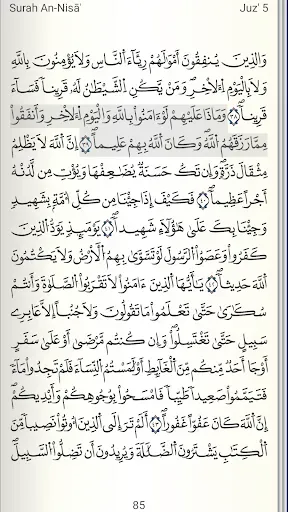 Surah An-Nisāʾ
Juz' 5
وَالذِينَ يُنفِقُونَ أَمْوَٰلَهُمْ رِئَآءَ اَلنَّاسِ وَلَا يُؤْمِنُونَ بِاللَّهِ
وَلَا بِالْيَوْمِ اِلْأَخِرِ وَمَنْ يَّكُنِ اِلشَّيْطَٰنُ لَهُۥ قَرِيناٗ فَسَآءَ
قَرِيناٗ وَمَاذَا عَلَيْهِمْ لَوْ ءَامَنُواْ بِاللَّهِ وَالْيَوْمِ اِلْأَخِرِ وَأَنفَقُواْ
مِمَّا رَزَقَهُمُ اُللَّهُ وَكَانَ اَللَّهُ بِهِمْ عَلِيماً إِنَّ اَللَّهَ لَا يَظْلِمُ
مِثْقَالَ ذَرَّةٖ وَإِن تَكُ حَسَنَةٌ يُضَٰعِفْهَا وَيُؤْتِ مِن لَّدُنْهُ
أَجْراً عَظِيماٗ فَكَيْفَ إِذَا جِئْنَا مِن كُلِّ أُمَّةِۢ بِشَهِيدٖ
وَجِئْنَا بِكَ عَلَىٰ هَٰٓؤُلَآءِ شَهِيداٗ يَوْمَئِذٖ يَوَدُّ اُلذِينَ
كَفَرُواْ وَعَصَوُاْ اُلرَّسُولَ لَوْ تَسَّوَّىٰ بِهِمُ اُلْأَرْضُ وَلَا يَكْتُمُونَ
اَللَّهَ حَدِيثاٗ يَٰٓأَيُّهَا اَلذِينَ ءَامَنُواْ لَا تَقْرَبُواْ اُلصَّلَوٰةَ وَأَنتُمْ
سُكَٰرَىٰ حَتَّىٰ تَعْلَمُواْ مَا تَقُولُونَ وَلَا جُنُباً إِلَّا عَابِرِے
سَبِيلٍ حَتَّىٰ تَغْتَسِلُواْ وَإِن كُنتُم مَّرْضَىٰ أَوْ عَلَىٰ سَفَرٍ
أَوْ جَا أَحَدٞ مِّنكُم مِّنَ اَلْغَآئِطِ أَوْ لَٰمَسْتُمُ اُلنِّسَآءَ فَلَمْ تَجِدُواْ مَآءٗ
فَتَيَمَّمُواْ صَعِيداٗ طَيِّباٗ فَامْسَحُواْ بِوُجُوهِكُمْ وَأَيْدِيكُمُۥ
إِنَّ اَللَّهَ كَانَ عَفُوّاً غَفُوراً أَلَمْ تَرَ إِلَى اَلذِينَ أُوتُواْ نَصِيباٗ مِّنَ
اَلْكِتَٰبِ يَشْتَرُونَ اَلضَّلَٰلَةَ وَيُرِيدُونَ أَن تَضِلُّواْ اُلسَّبِيلَ
85